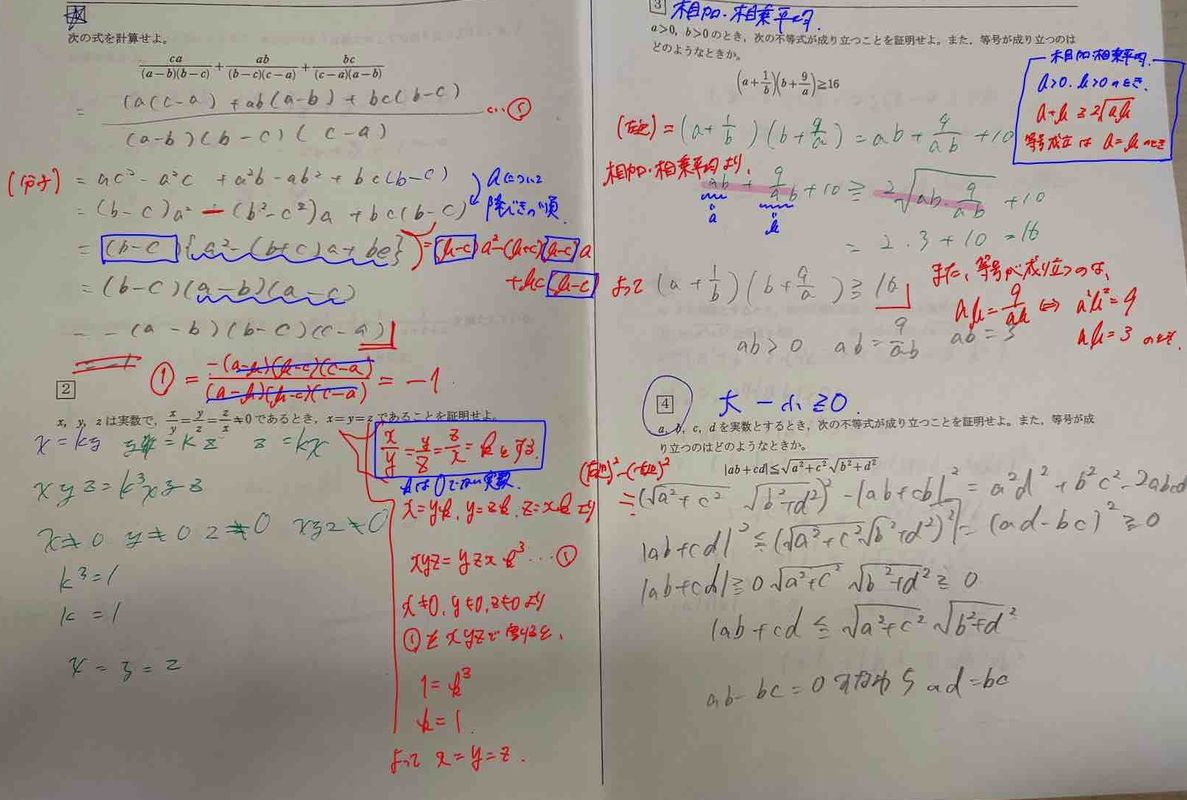 次の式を計算せよ。
ca/((a−b)(b−c)) + ab/((b−c)(c−a)) + bc/((c−a)(a−b))
= (ca(c-a) + ab(a-b) + bc(b-c))/((a-b)(b-c)(c-a)) …①
(分子) = ac² - a²c + a²b - ab² + bc(b-c)
aについて
降べきの順
= (b-c)a² - (b²-c²)a + bc(b-c)
= (b-c){a²-(b+c)a+bc}
= (b-c)a²-(b+c)(b-c)a
+bc(b-c)
= (b-c)(a-b)(a-c)
= -(a-b)(b-c)(c-a)
① = -(a-b)(b-c)(c-a)/((a-b)(b-c)(c-a)) = -1.
2
x, y, z は実数で, x/y = y/z = z/x ≠ 0 であるとき, x=y=z であることを証明せよ。
x = ky y = kz z = kx
x/y = y/z = z/x = k とする.
kは0でない実数
xyz = k³xyz
x≠0 y≠0 z≠0 xyz≠0
k³=1
k=1
x = y = z
x=yk, y=zk, z=xk より
xyz = yzxk³ …①
x≠0, y≠0, z≠0 より
①を xyzで割ると,
1 = k³
k = 1.
よって x = y = z.
3
相加・相乗平均
a>0, b>0 のとき, 次の不等式が成り立つことを証明せよ。また, 等号が成り立つのは
どのようなときか。
(a+1/b)(b+9/a)≧16
相加・相乗平均
a>0, b>0 のとき.
a+b≧2√ab
等号成立は a=b のとき
(左辺) = (a+1/b)(b+9/a) = ab + 9/ab + 10
相加・相乗平均より,
ab + 9/ab + 10 ≧ 2√(ab・9/ab) + 10
a b
= 2・3+10 = 16
よって (a+1/b)(b+9/a) ≧ 16
また, 等号が成り立つのは,
ab = 9/ab ⇔ a²b²=9
ab=3 のとき.
ab>0 ab = 9/ab ab = 3
4
大 − 小 ≧ 0.
a, b, c, d を実数とするとき, 次の不等式が成り立つことを証明せよ。また, 等号が成
り立つのはどのようなときか。
|ab+cd|≦√(a²+c²)√(b²+d²)
(右辺)²-(左辺)²
= (√(a²+c²) √(b²+d²))² - |ab+cd|² = a²d² + b²c² - 2abcd
= (ad-bc)² ≧ 0
|ab+cd|² ≦ (√(a²+c²)√(b²+d²))²
|ab+cd| ≧ 0 √(a²+c²) √(b²+d²) ≧ 0
|ab+cd ≦ √(a²+c²) √(b²+d²)
ab-bc = 0 すなわち ad=bc